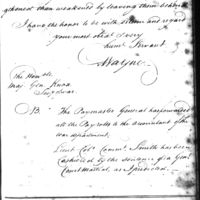 gthened than weakened by leaving them behind
I have the honor to be with esteem and regard
your most Obt & very
hum Servant
Wayne
The Honble
Maj. Gen. Knox
Secy of War
NB: The Paymaster General has forwarded
all the Payrolls to the accountant of the
War department,
Lieut Colo. Comm. Smith has been
Cashiered by the sentence of a Genl
Court Martial, as I predicted.